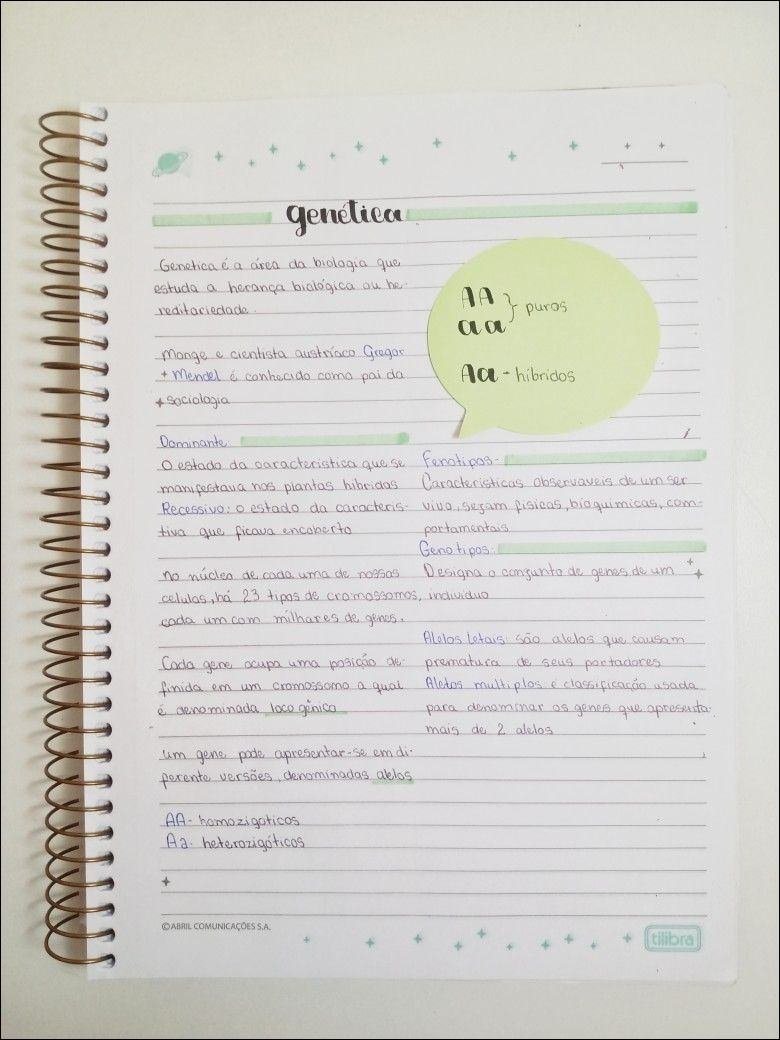 genética
Genetica é a área da biologia que
estuda a herança biológica ou he-
reditariedade.
Monge e cientista austríaco Gregor
Mendel é conhecido como pai da
sociologia
Dominante:
O estado da caracteristica que se
manifestava nos plantas hibridas
Recessivo: o estado da caracteris-
tiva que ficava encoberto
no núcleo de cada uma de nossas
celulas, há 23 tipos de cromossomos,
cada um com milhares de genes.
Cada gene ocupa uma posição de-
finida em um cromossomo a qual
é denominada loco gênico
um gene pode apresentar-se em di-
ferente versões, denominadas alelos
AA- homozigoticos
Aa- heterozigóticos
AA
aa } puros
Aa - híbridos
Fenotipos:
Caracteristicas observaveis de um ser
vivo, sejam fisicas, bioquimicas, com-
portamentais
Genotipos:
Designa o conjunto de genes de um
individuo
Alelos Letais: são alelos que causam
prematura de seus portadores
Aletos multiplos é classificação usada
para denominar os genes que apresenta
mais de 2 alelos
©ABRIL COMUNICAÇÕES S.A.
tilibra